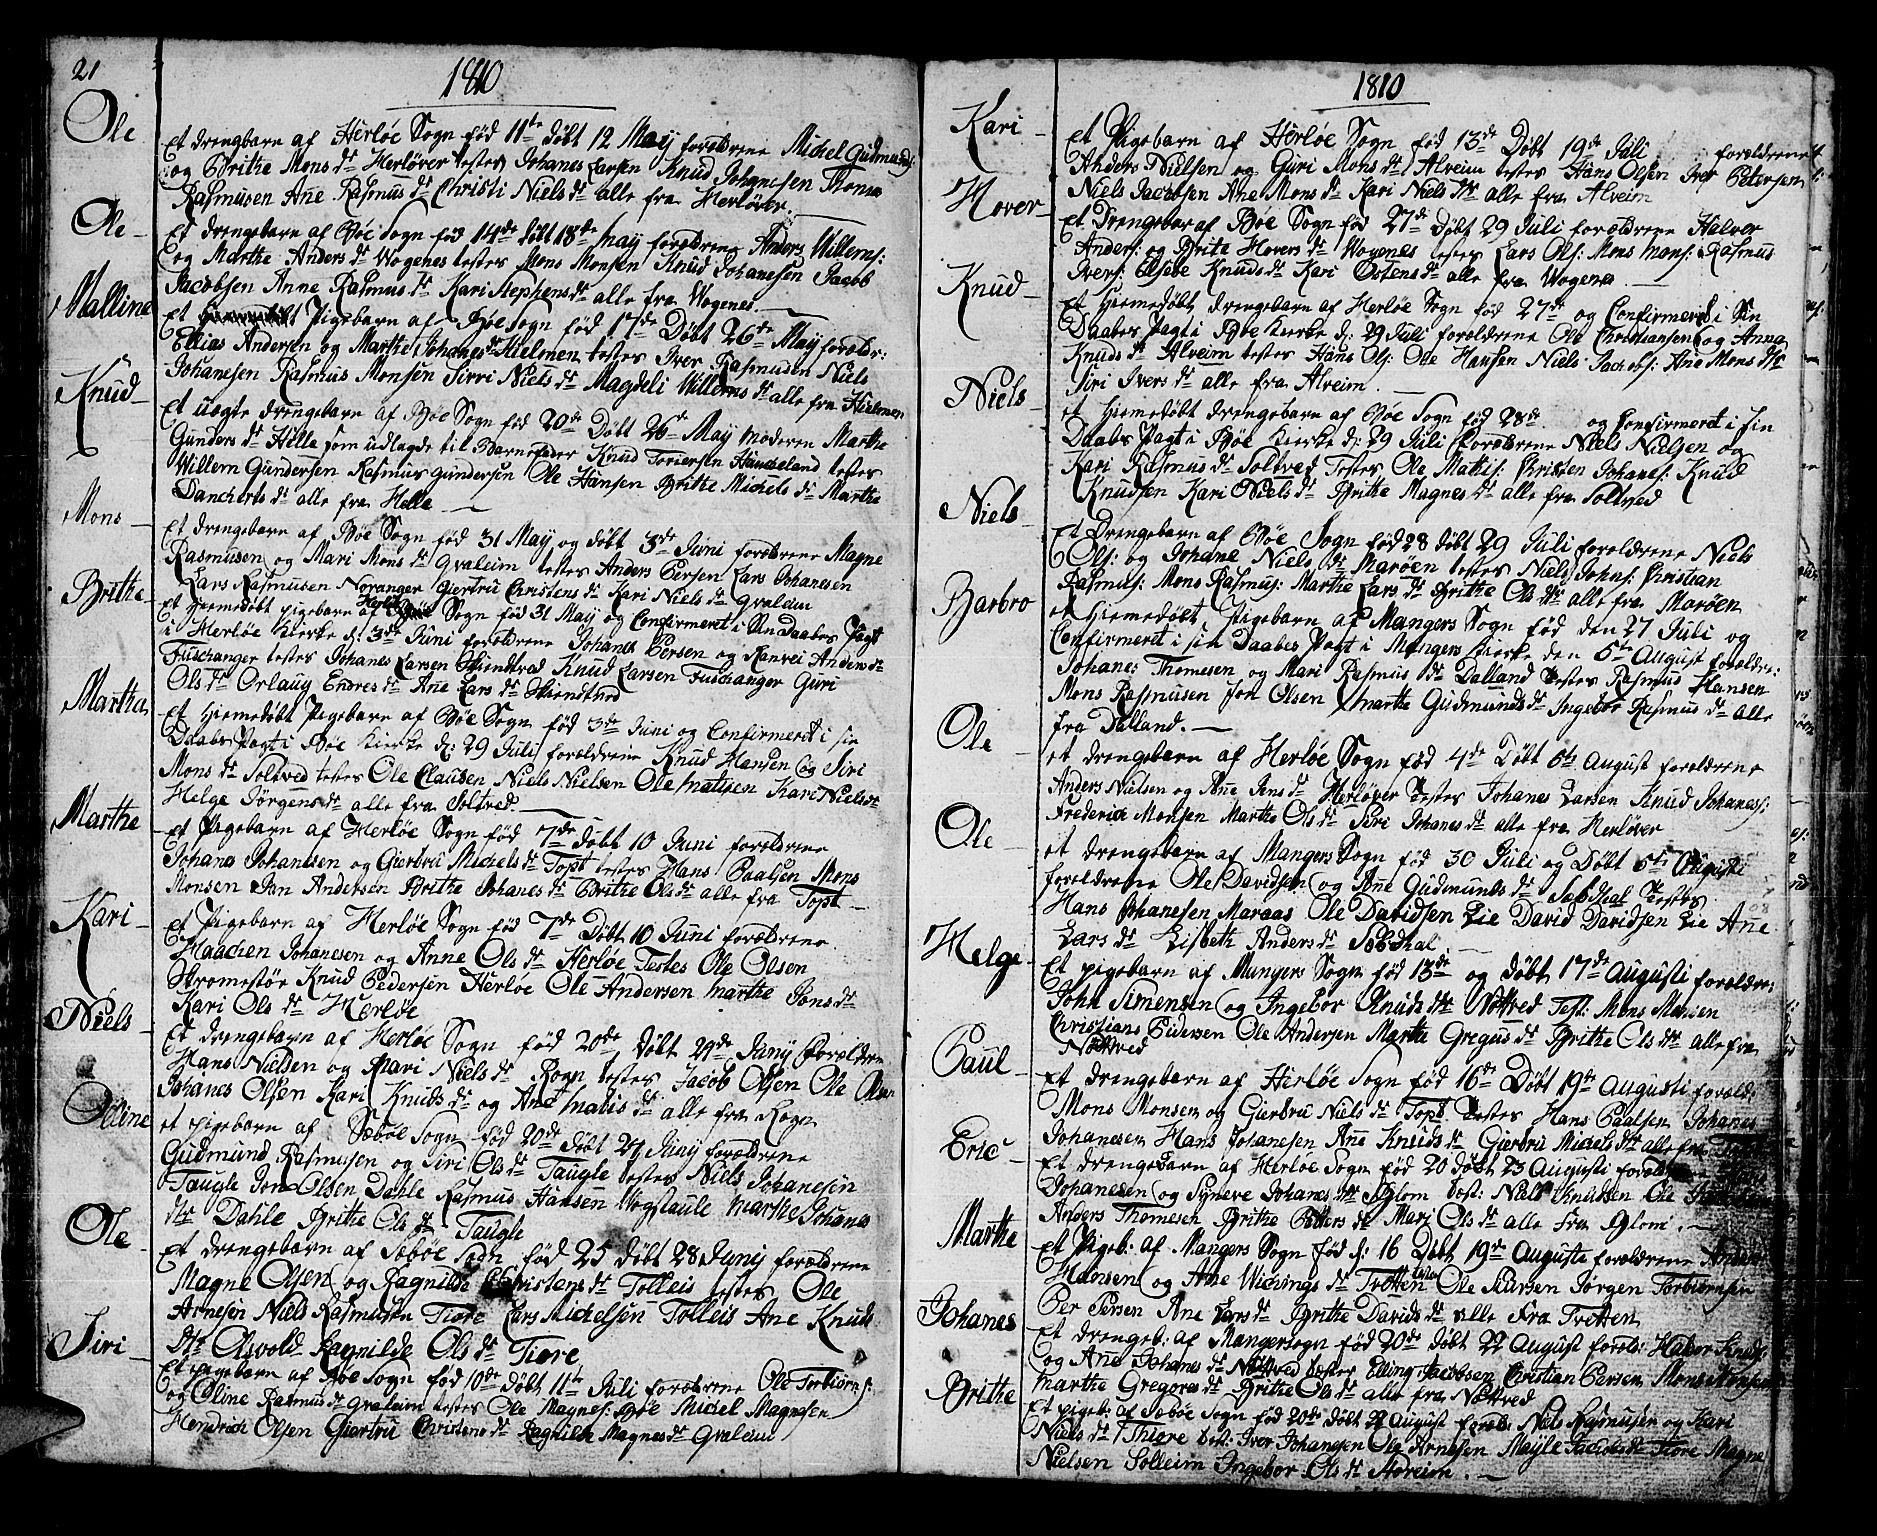 21
1810
Ole
Et drengebarn af Herløe Sogn fød 11te døbt 12 May forældrene Michel Gudmunds:
og Brithe Mons dr Herløver testes Johanes Larsen Knud Johanesen Thomas
Rasmusen Ane Rasmus dr Christi Niels dr alle fra Herløver.
Ole
Et drengebarn af Bøe Sogn fød 14de døbt 18de May forældrene Anders Willems:
og Marthe Anders dr Wogenes testes Mons Monsen Knud Johanesen Jacob
Jacobsen Anne Rasmus dr Kari Stephens dr alle fra Wogenes
Malline
Et Pigebarn af Bøe Sogn fød 17de Døbt 26de May forældr:
Ellias Andersen og Marthe Johanes dr Kielonen testes Iver Rasmusen Niels
Johanesen Rasmus Monsen Sirri Niels dr Magdeli Willems dr alle fra Kielonen
Knud
Et uægte drengebarn af Bøe Sogn fød 20de Døbt 26de May moderen Marthe
Gunders dr Hille som udlagde til Barnefader Knud Toriersen Haucheland testes
Willem Gundersen Rasmus Gundersen Ole Hansen Brithe Michels dr Marthe
Dancherts dr alle fra Helle
Mons
Et drengebarn af Bøe Sogn fød 31 May og døbt 3de Juni forældrene Magne
Rasmusen og Mari Mons dr Qvaleim testes Anders Persen Lars Johanesen
Lars Rasmusen Noranger Giertru Christens dr Kari Niels dr Qvaleim
Brithe
Et Hiemedøbt pigebarn af Herløe Sogn fød 31 May og Confirmeret i Sin Daabes Pagt
i Herløe Kierke d: 3de Juni forældrene Johanes Persen og Ranvei Anders dr
Fuschanger testes Johanes Larsen Skiendtved Knud Larsen Fuschanger Guri
Ols dr Orlaug Endres dr Ane Lars dr Skiendtved
Martha
Et Hiemedøbt Pigebarn af Bøe Sogn fød 3de Juni og Confirmeret i sin
Daabes Pagt i Bøe Kierke d: 29 Juli forældrene Knud Hansen og Siri
Mons dr Soltved testes Ole Clausen Niels Nielsen Ole Matisen Kari Niels dr
Helge Jørgens dr alle fra Soltved
Marthe
Et Pigebarn af Herløe Sogn fød 7de døbt 10 Juni forældrene
Johanes Johanesen og Giertru Michels dr Topt testes Hans Paalsen Mons
Monsen Jan Andersen Brithe Johanes dr Brithe Ols dr alle fra Topt
Kari
Et Pigebarn af Herløe Sogn fød 7de Døbt 10 Juni forældrene
Haachen Johanesen og Anne Ols dr Herløe Testes Ole Olsen
Strømestør Knud Pedersen Herløe Ole Andersen Marthe Jons dr
Kari Ols dr Herløe
Niels
Et drengebarn af Herløe Sogn fød 20de døbt 24de Junij Forældren
Hans Nielsen og Mari Niels dr Rogn testes Jacob Olsen Ole
Johanes Olsen Kari Knuds dr og Ane Matis dr alle fra Rogn
Olline
et pigebarn af Sæbøe Sogn fød 20de døbt 24 Junij forældrene
Gudmund Rasmusen og Siri Ols dr Taugle testes Niels Johanesen
Taugle Jon Olsen Dahle Rasmus Hansen Wogstaule Marthe Johanes
dtr Dahle Brithe Ols dr Taugle
Ole
Et drengebarn af Sæbøe Sogn fød 25 døbt 28 Junij forældrene
Magne Olsen og Ragnilde Christens dr Tolleis testes Ole
Arnesen Niels Rasmusen Tiore Lars Michelsen Tolleis Ane Knuds
dtr Oswold Ragnilde Ols dr Tiore
Siri
Et pigebarn af Bøe Sogn fød 10de døbt 11te Juli forældrene Ole Torbiørns:
og Oline Rasmus dr Qvaleim testes Ole Magnes: Bøe Michel Magnesen
Hendrich Olsen Giertru Christens dr Ragnilde Magnes dr Qvaleim
1810
Kari
Et Pigebarn af Herløe Sogn fød 13de Døbt 19de Juli forældrene
Anders Nielsen og Guri Mons dr Alveim testes Hans Olsen Iver Petersen
Niels Jacobsen Ane Mons dr Kari Niels dtr alle fra Alveim
Hover
Et Drengebar af Bøe Sogn fød 27de Døbt 29 Juli forældrene Halver
Anders: og Brite Hovers dr Wogenes testes Lars Ols: Mons Mons: Rasmus
Ivers: Elsebe Knuds dr Kari Ostens dr alle fra Wogenes
Knud
Et Hiemedøbt drengebarn af Herløe Sogn fød 27de og Confirmered i Sin
Daabes Pagt i Bøe Kierke d: 29 Juli forældrene Ole Christiansen og Anna
Knuds dr Alveim testes Hans Ols: Ole Hansen Niels Jacobs: Ane Mons dtr
Siri Ivers dr alle fra Alveim
Niels
et Hiemedøbt drengebarn af Bøe Sogn fød 28de og Confirmeret i sin
Daabs Pagt i Bøe Kierke d: 29 Juli Forældrene Niels Nielsen og
Kari Rasmus dr Soltved Testes Ole Mattis: Christen Johanes: Knud
Knudsen Kari Niels dr Brithe Magnes dr alle fra Soltved
Niels
Et Drengebarn af Bøe Sogn fød 28 døbt 29 Juli forældrene Niels
Ols: og Johane Niels dr Marøen testes Niels Johns: Christian
Rasmus: Mons Rasmus: Marthe Lars dr Brithe Ols dtr alle fra Marøen
Barbro
et Hiemedøbt Pigebarn af Mangers Sogn fød den 27 Juli og
Confirmeret i sin Daabes Pagt i Mangers Kierke den 5te August foreldre:
Johanes Thomesen og Mari Rasmus dr Dalland testes Rasmus Hansen
Mons Rasmusen Jon Olsen Marthe Gudmunds dr Ingebor Rasmus dr alle
fra Dalland.
Ole
et drengebarn af Herløe Sogn fød 4de Døbt 6te August forældrene
Anders Nielsen og Ane Jens dr Herløver testes Johanes Larsen Knud Johaness:
Frederich Monsen Marthe Ols dr Siri Johanes dr alle fra Herløver
Ole
et drengebarn af Mangers Sogn fød 30 Juli og Døbt 5te Augusti
forældrene Ole Davidsen og Ane Gudmunds dr Sæbdhal Testes
Hans Johanesen Maraas Ole Davidsen Lie David Davidsen Lie Ane
Lars dr Lisbeth Anders dr Sæbdhal
Helge
Et pigebarn af Mangers Sogn fød 13de og døbt 17de Augusti forældre:
John Simensen og Ingebor Knuds dtr Nøttved Test: Mons Monsen
Christians Pedersen Ole Andersen Marthe Gregus dr Brithe Ols dtr alle fra
Nøttved
Paul
Et drengebarn af Herløe Sogn fød 16de Døbt 19de Augusti foreld:
Mons Monsen og Giertru Niels dr Topt testes Hans Paalsen Johanes
Johanesen Hans Johanesen Ane Knuds dr Giertru Michels dtr alle fra Topt
Eric
Et drengebarn af Herløe Sogn fød 20 døbt 23 Augusti foreldrene
Johanesen og Syneve Johanes dtr Blom test: Niels Knudsen Ole
Anders Thomesen Brithe Peters dr Mari Ols dr alle fra Blom.
Marthe
Et Pigeb: af Mangers Sogn fød d: 16 Døbt 19de Auguste forældrene Anders
Hansen og Ane Wichings dr Trotten test: Ole Siursen Jørgen Torbiørnsen
Per Persen Ane Lars dr Brithe Davids dr alle fra Tretten
Johanes
Et drengeb: af Mangersogn fød 20de døbt 22 August foreld: Halvor Knuds:
og Ane Johanes dr Nøttved testes Elling Jacobsen Christian Persen Mons
Marthe Gregores dr Brithe Ols dr alle fra Nøttved
Brithe
Et pigeb: af Sæbøe Sogn fød 20de døbt 22 August foreld: Niels Rasmusen og Kari
Niels dr Thiore test: Iver Johanesen Ole Arnesen Mayle Jacobs dr Tiore Magne
Nielsen Solleim Ingebor Ols dr Storeim.